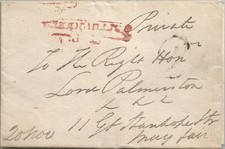 Private
To The Right Hon
Lord Palmerston
&c &c
11 Gt Stanhope Str
May Fair
20 Nov